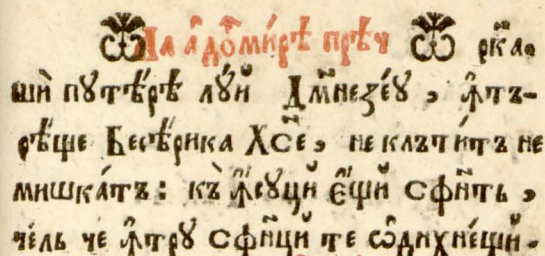 Ла а҆доⷬ҇ми́рѣ преч҇ ркаⷭ҇
ши̇̀ пꙋтѣ́рѣ лꙋ́й Дмⷣнезе́ꙋ , ꙟ҆тъ-
рѣ́ще Бесѣ́рика Хсⷭ҇е , неклъти́тъ не
мишка́тъ : къ ꙟ҆сꙋши̇ е҆́ши̇ сфи́нть ,
че́ль че ꙟ҆трꙋ сфи́нци̇ те ѡ҆дихне́щи̇ .